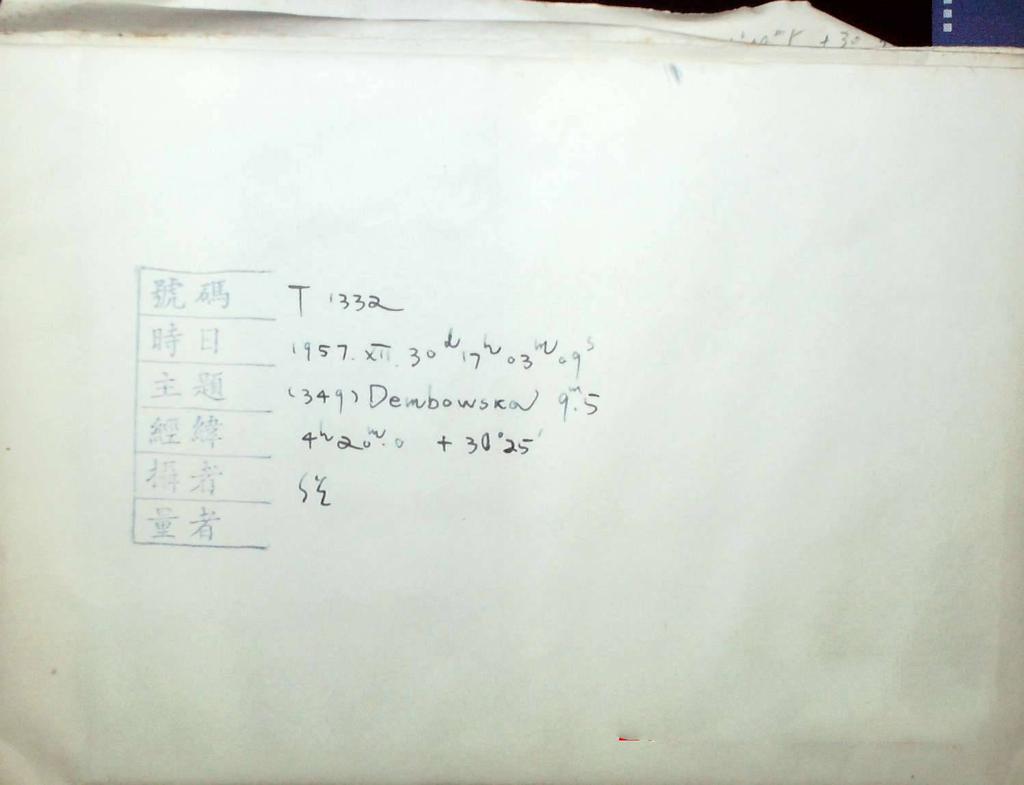 號碼 T 1332
時日 1957. XII. 30ᵈ 17ʰ 03ᵐ 09ˢ
主題 (349) Dembowska 9ᵐ.5
經緯 4ʰ20ᵐ.0 + 30°25'
攝者
量者